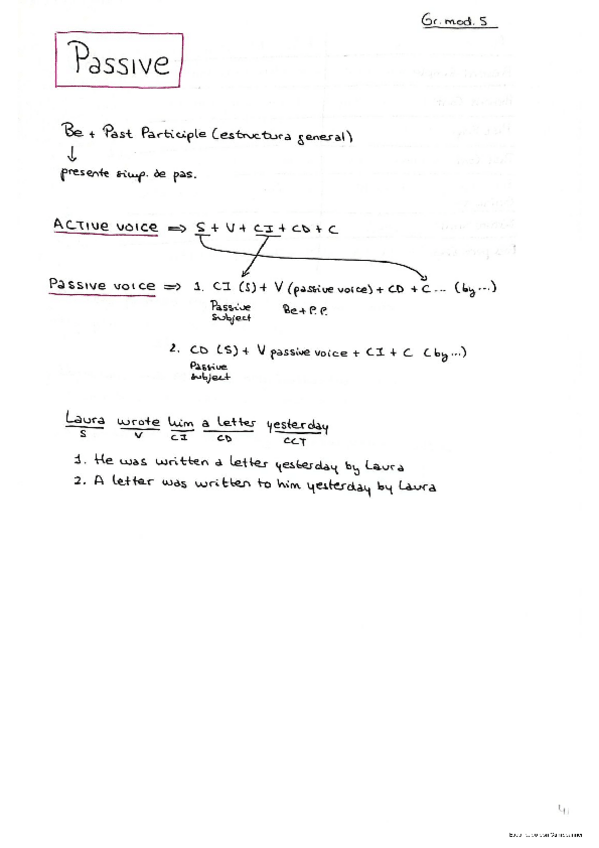 Gr. mod. 5
Passive
Be + Past Participle (estructura general)
↓
presente simp. de pas.
ACTIVE VOICE ⇒ S + V + CI + CD + C
Passive voice ⇒ 1. CI (S) + V (passive voice) + CD + C ... (by ...)
Passive subject Be + P.P.
2. CD (S) + V passive voice + CI + C (by ...)
Passive subject
Laura wrote him a letter yesterday
S V CI CD CCT
1. He was written a letter yesterday by Laura
2. A letter was written to him yesterday by Laura